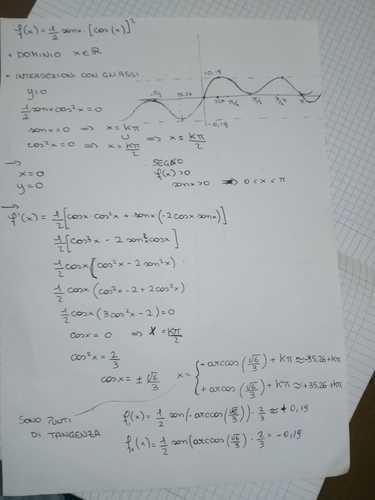 f(x) = 1/2 senx · [cos(x)]²
• DOMINIO x∈ℝ
• INTERSEZIONI CON GLI ASSI
y=0
1/2 senx cos²x = 0
senx = 0 ⇒ x = kπ
∪ ⇒ x = kπ/2
cos²x = 0 ⇒ x = kπ/2
+0,19
-0,19
π
→ x=0
y=0
SEGNO
f(x)>0
senx>0 ⇒ 0<x<π
→ f'(x) = 1/2 [cosx · cos²x + senx (-2cosx senx)]
1/2 [cos³x - 2 sen²x cosx]
1/2 cosx (cos²x - 2sen²x)
1/2 cosx (cos²x - 2 + 2cos²x)
1/2 cosx (3cos²x - 2) = 0
cosx = 0 ⇒ x = kπ/2
cos²x = 2/3
cosx = ± √6/3
x = { -arcos(√6/3) + kπ ≈ -35,26 + kπ
+arcos(√6/3) + kπ ≈ +35,26 + kπ
SONO PUNTI
DI TANGENZA
f(x) = 1/2 sen(-arcos(√6/3)) · 2/3 ≈ +0,19
f(x) = 1/2 sen(arcos(√6/3)) · 2/3 = -0,19